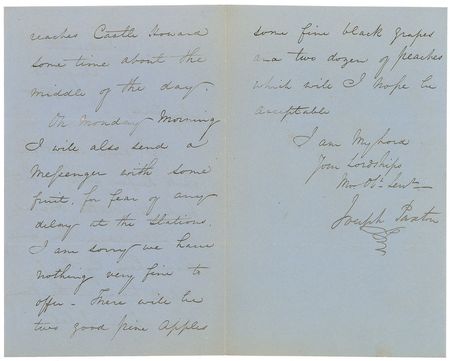 reaches Castle Howard
some time about the
middle of the day.
On Monday Morning
I will also send a
Messenger with some
fruit, for fear of any
delay at the Stations.
I am sorry we have
nothing very fine to
offer - There will be
two good pine Apples
some fine black grapes
and two dozen of peaches
which will I hope be
acceptable
I am My Lord
Your Lordships
Mo Obt Servt
Joseph Paxton